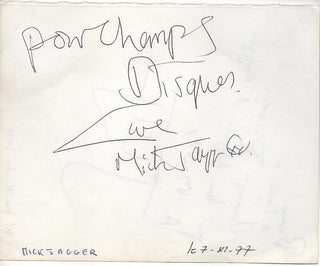 pour Champs
Disques.
Love
Mick Jagger
MICK JAGGER
le 7-XI-77